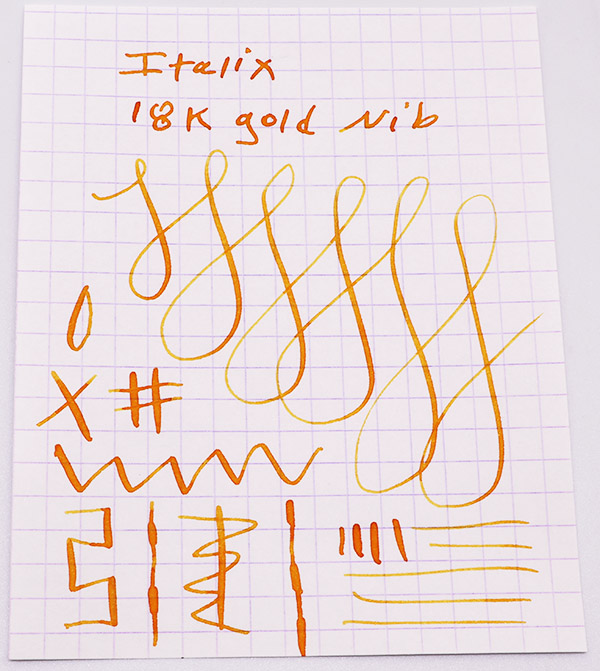 Italix
18K gold Nib
0
X #